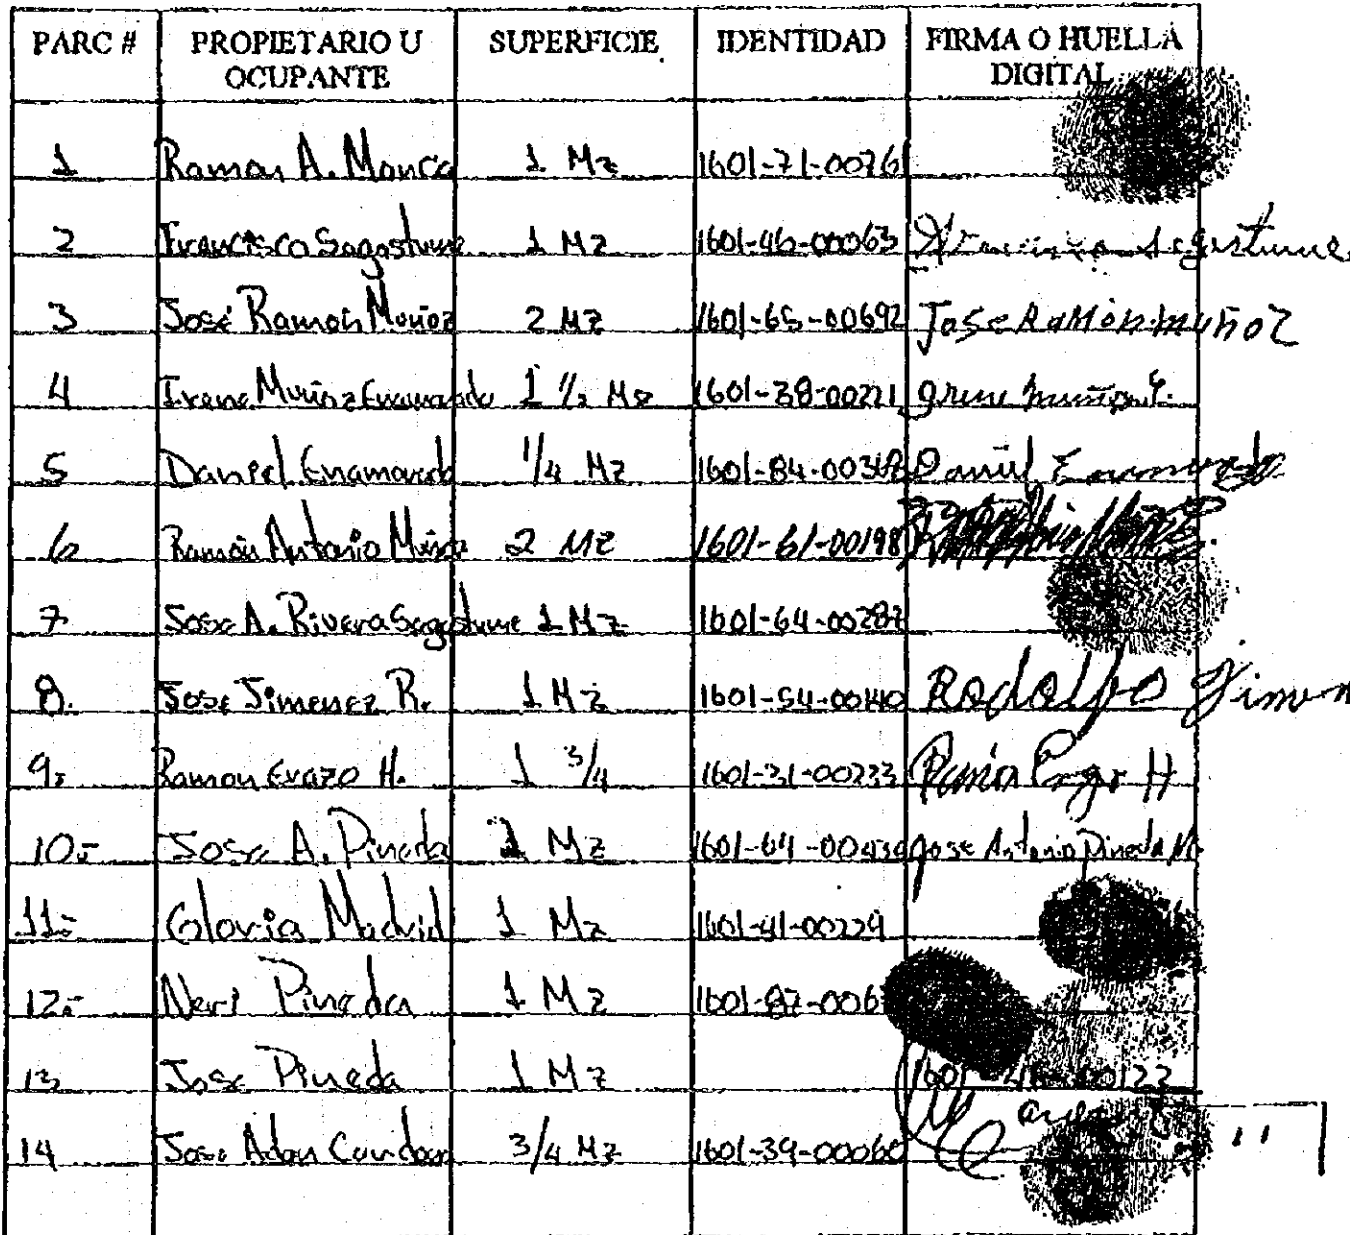 PARC # PROPIETARIO U OCUPANTE SUPERFICIE IDENTIDAD FIRMA O HUELLA DIGITAL
1 Ramon A. Monca 1 Mz 1601-71-00761
2 Francisco Sagastume 1 Mz 1601-46-00063 Sagastume
3 José Ramon Muñoz 2 Mz 1601-65-00692 Jose Ramón muñoz
4 Irene Muñoz Enamorado 1 1/2 Mz 1601-38-00221 Irene muñoz E.
5 Daniel Enamorado 1/4 Mz Daniel Enamorado
6 Ramón Antonio Muñoz 2 Mz 1601-61-00198
7 Jose A. Rivera Sagastume 1 Mz 1601-64-00287
8. Jose Jimenez R. 1 Mz 1601-54-00140 Rodolfo Jimen
9.- Ramon Erazo H. 1 3/4 1601-31-00233 Ramón Erazo H
10.- Jose A. Pineda Mz 1601-64-00434 Jose Antonio Pineda M.
11.- Gloria Madrid 1 Mz 1601-41-00229
12.- Neri Pineda 1 Mz 1601-87-006
13 Jose Pineda 1 Mz
14 Jose Adan 3/4 Mz 1601-39-00060